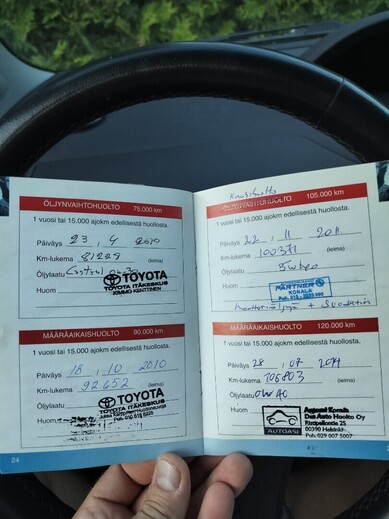 ÖLJYNVAIHTOHUOLTO 75.000 km
1 vuosi tai 15.000 ajokm edellisestä huollosta.
Päiväys 23 . 4 2010
Km-lukema 81229 (leima)
Öljylaatu Castrol
TOYOTA
TOYOTA ITÄKESKUS
KIMMO KENTTINEN
Huom
MÄÄRÄAIKAISHUOLTO 90.000 km
1 vuosi tai 15.000 ajokm edellisestä huollosta.
Päiväys 18 . 10 2010
Km-lukema 92652 (leima)
Öljylaatu
TOYOTA
TOYOTA ITÄKESKUS
Huom
24
105.000 km
1 vuosi tai 15.000 ajokm edellisestä huollosta.
Päiväys 22 . 11 2011
Km-lukema 100371 (leima)
Öljylaatu 5w40
Huom
PARTNER
KONALA
MÄÄRÄAIKAISHUOLTO 120.000 km
1 vuosi tai 15.000 ajokm edellisestä huollosta.
Päiväys 28 . 07 2014
Km-lukema 106803 (leima)
Öljylaatu 0W40
Huom
AUTOASI
Autoasi Konala
Dm-Auto Huolto Oy
Ristipellontie 25
00390 Helsinki
Puh. 029 007 5007